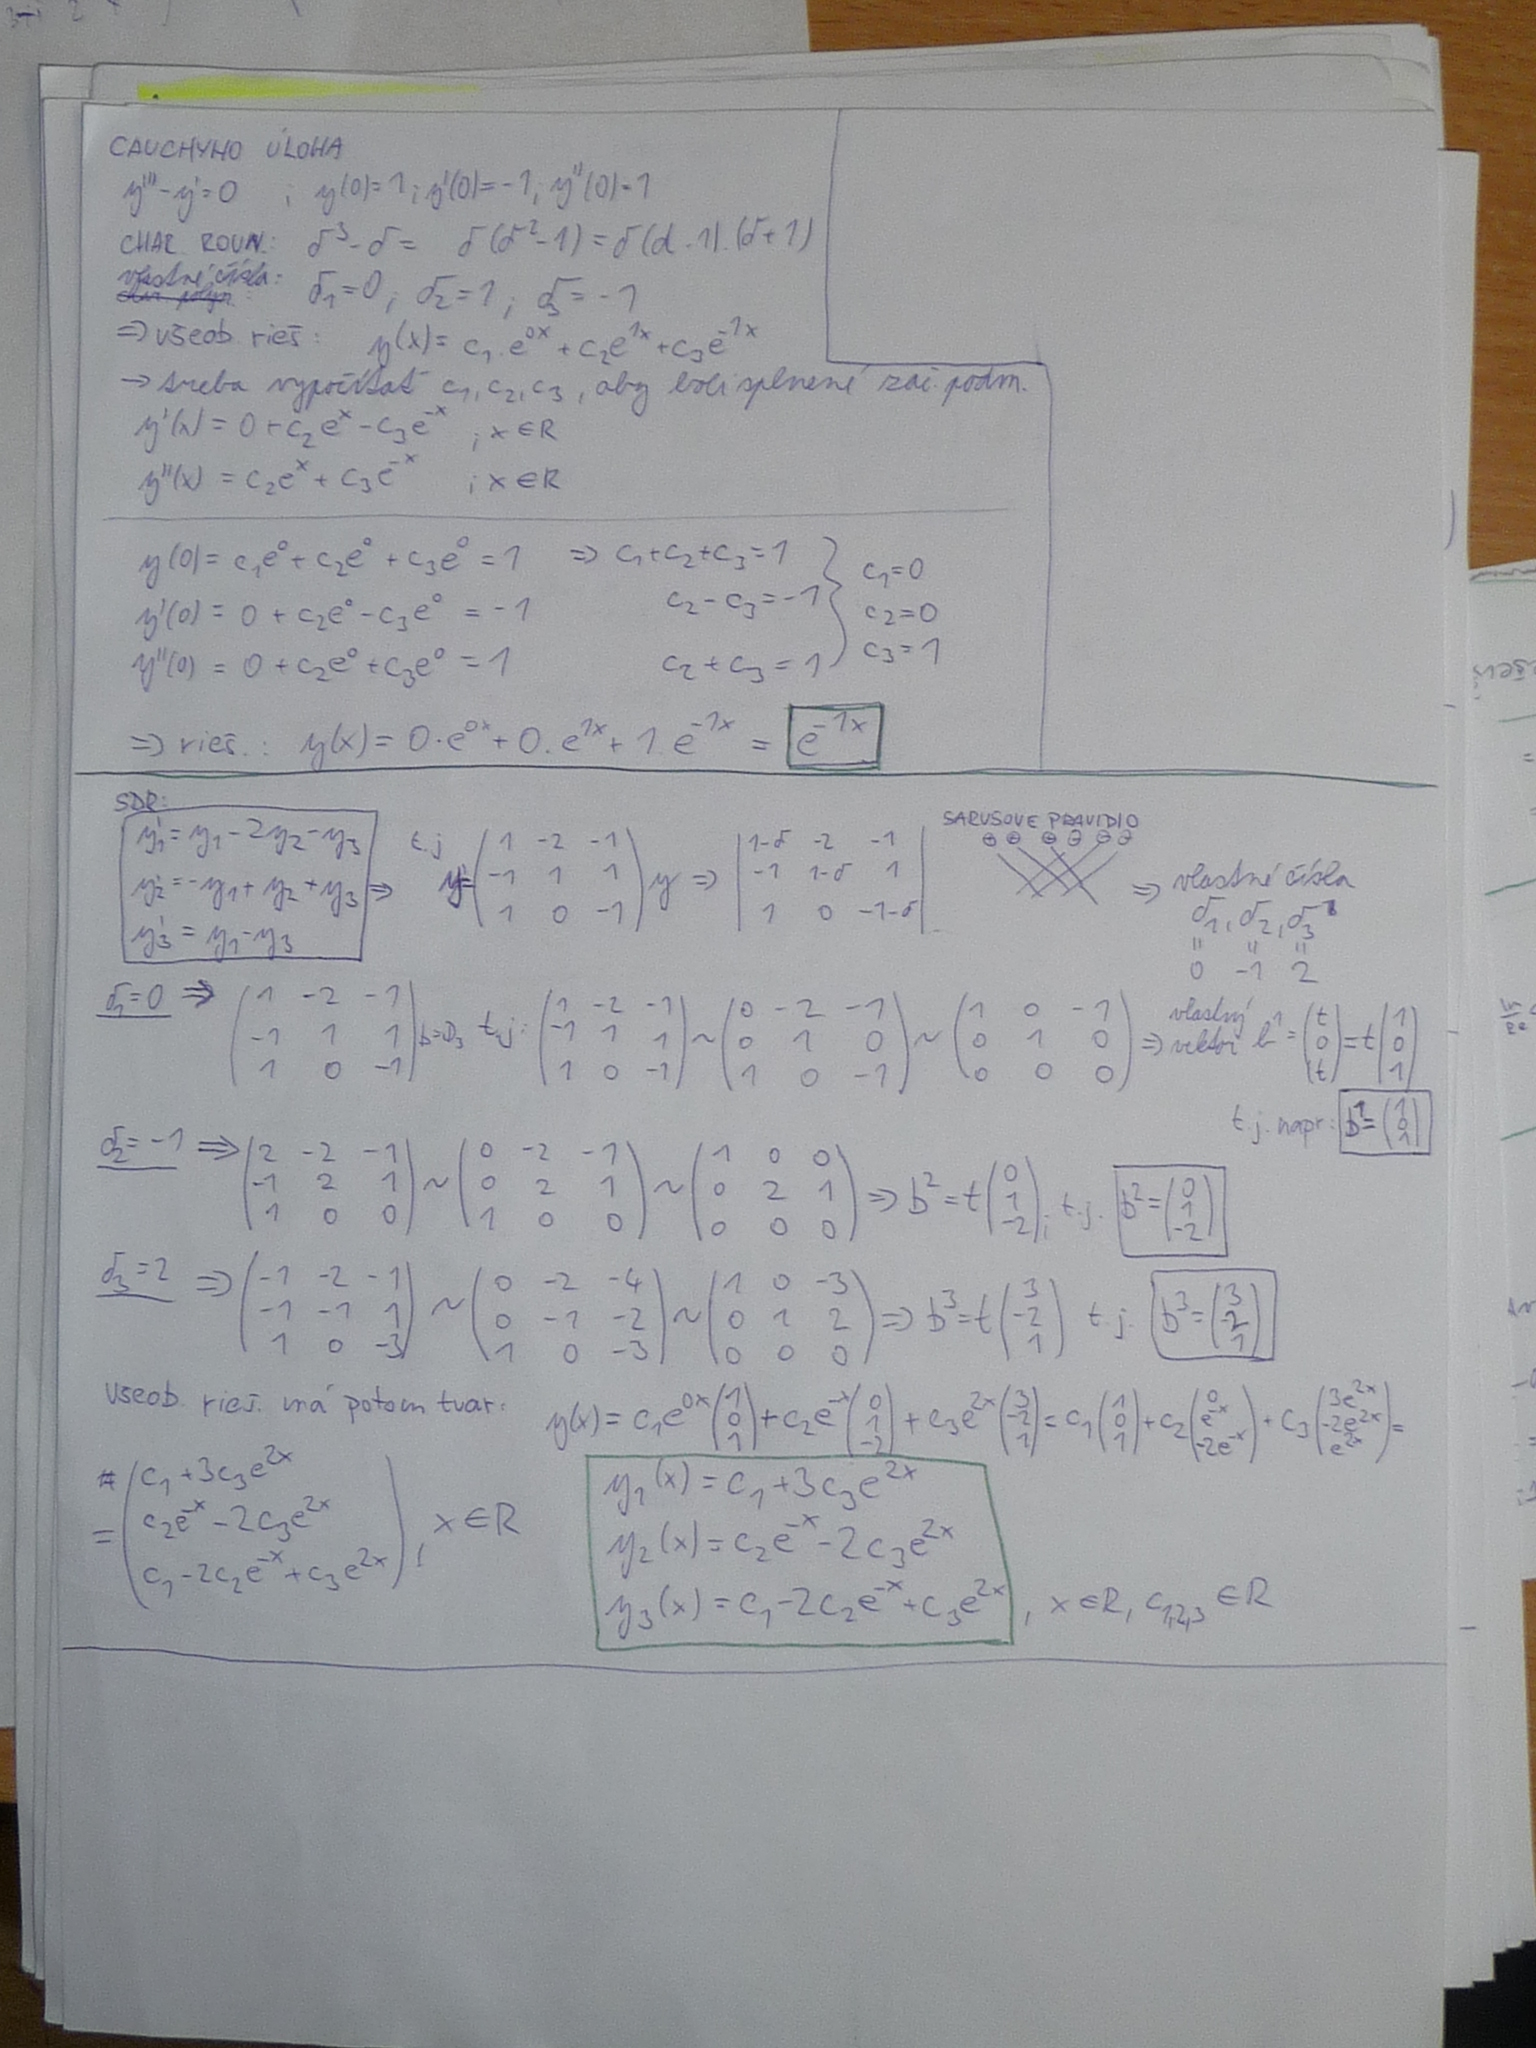 CAUCHYHO ÚLOHA
y''' - y' = 0 ; y(0)=1 ; y'(0)=-1 ; y''(0)=1
CHAR. ROVN.: δ³-δ = δ(δ²-1) = δ(δ-1).(δ+1)
vlastné čísla:
δ₁=0 ; δ₂=1 ; δ₃=-1
⇒ všeob. rieš: y(x) = c₁.e^0x + c₂e^1x + c₃e^-1x
→ treba vypočítať c₁, c₂, c₃, aby boli splnené zač. podm.
y'(x) = 0 + c₂e^x - c₃e^-x ; x∈R
y''(x) = c₂e^x + c₃e^-x ; x∈R
y(0) = c₁e⁰ + c₂e⁰ + c₃e⁰ = 1 ⇒ c₁+c₂+c₃=1 } c₁=0
y'(0) = 0 + c₂e⁰ - c₃e⁰ = -1 c₂-c₃=-1 c₂=0
y''(0) = 0 + c₂e⁰ + c₃e⁰ = 1 c₂+c₃=1 c₃=1
⇒ rieš.: y(x) = 0.e^0x + 0.e^1x + 1.e^-1x = e^-1x
SDR:
SARUSOVE PRAVIDLO
⊕ ⊕ ⊕ ⊖ ⊖ ⊖
y₁' = y₁ - 2y₂ - y₃
y₂' = -y₁ + y₂ + y₃
y₃' = y₁ - y₃
⇒ t.j y' = (1 -2 -1
-1 1 1
1 0 -1) y ⇒ |1-δ -2 -1
-1 1-δ 1
1 0 -1-δ|
⇒ vlastné čísla
δ₁, δ₂, δ₃
" " "
0 -1 2
δ₁=0 ⇒ (1 -2 -1
-1 1 1
1 0 -1) b=0₃ t.j: (1 -2 -1
-1 1 1
1 0 -1) ~ (0 -2 -1
0 1 0
1 0 -1) ~ (1 0 -1
0 1 0
0 0 0) ⇒ vlastný vektor b¹ = (t
0
t) = t (1
0
1)
t.j. napr: b¹ = (1
0
1)
δ₂=-1 ⇒ (2 -2 -1
-1 2 1
1 0 0) ~ (0 -2 -1
0 2 1
1 0 0) ~ (1 0 0
0 2 1
0 0 0) ⇒ b² = t (0
1
-2) ; t.j. b² = (0
1
-2)
δ₃=2 ⇒ (-1 -2 -1
-1 -1 1
1 0 -3) ~ (0 -2 -4
0 -1 -2
1 0 -3) ~ (1 0 -3
0 1 2
0 0 0) ⇒ b³ = t (3
-2
1) t.j. b³ = (3
-2
1)
Všeob. rieš. má potom tvar: y(x) = c₁e^0x (1
0
1) + c₂e^-x (0
1
-2) + c₃e^2x (3
-2
1) = c₁ (1
0
1) + c₂ (0
e^-x
-2e^-x) + c₃ (3e^2x
-2e^2x
e^2x) =
= (c₁ + 3c₃e^2x
c₂e^-x - 2c₃e^2x
c₁ - 2c₂e^-x + c₃e^2x) , x∈R
y₁(x) = c₁ + 3c₃e^2x
y₂(x) = c₂e^-x - 2c₃e^2x
y₃(x) = c₁ - 2c₂e^-x + c₃e^2x , x∈R, c₁,₂,₃ ∈R